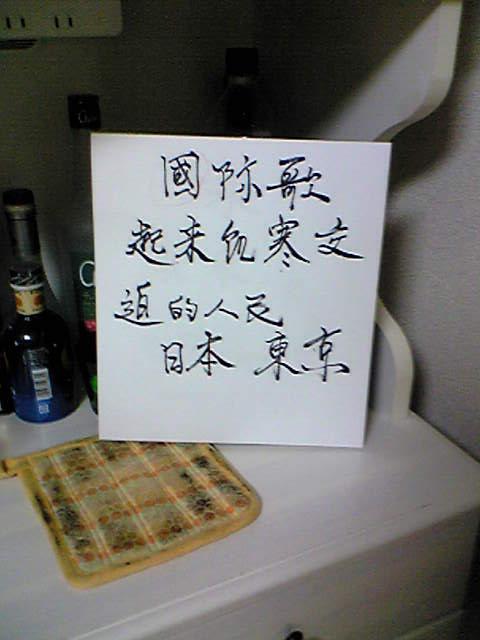 國际歌
起来饥寒交
迫的人民
日本 東京